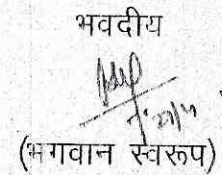 भवदीय
(भगवान स्वरूप)